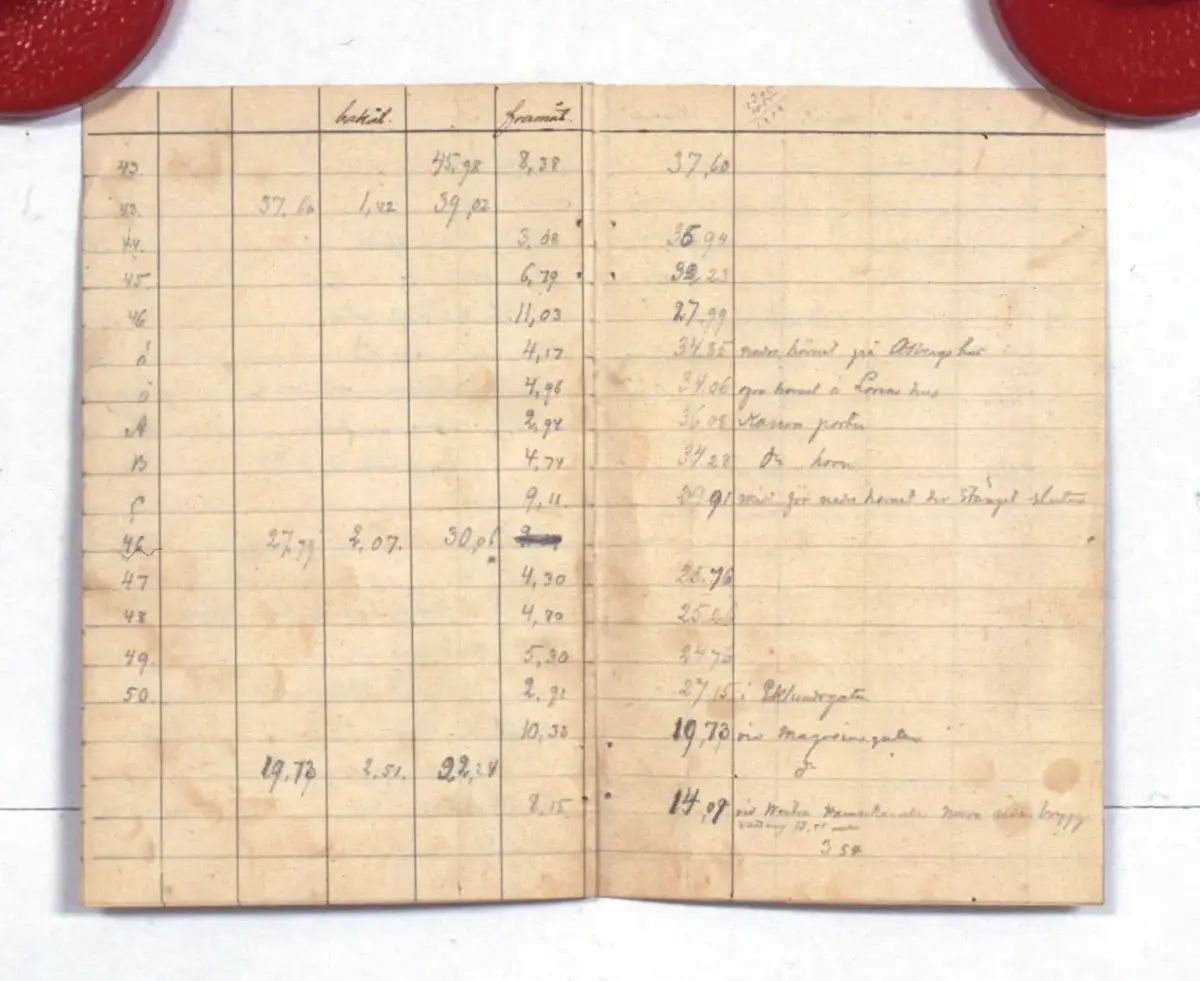 bakåt. framåt.
43. 45,98 8,38 37,60
43. 37,60 1,42 39,02
44. 3,08 35,94
45 6,79 32,23
46 11,03 27,99
å 4,17 34.85 nedre hörnet på Åsbergs hus
ö 4,96 34.06 öfre hörnet å Lorens hus
A 2,94 36.08 porten
B 4,74 34.28 Do hörn
C 9,11. 29,91 nedre hörnet der Stänget slutar
46 27,99 2,07. 30,06
47 4,30 25.76
48 4,80 25.26
49. 5,30 24.76
50 2.91 27,15 i Eklundsgatan
10,33 19,73 vid Magasinsgatan
19,73 2,51. 22,24 Do
8.15 14,09 vid Westra Hamnkanalen Norra sidan brygg
3 54